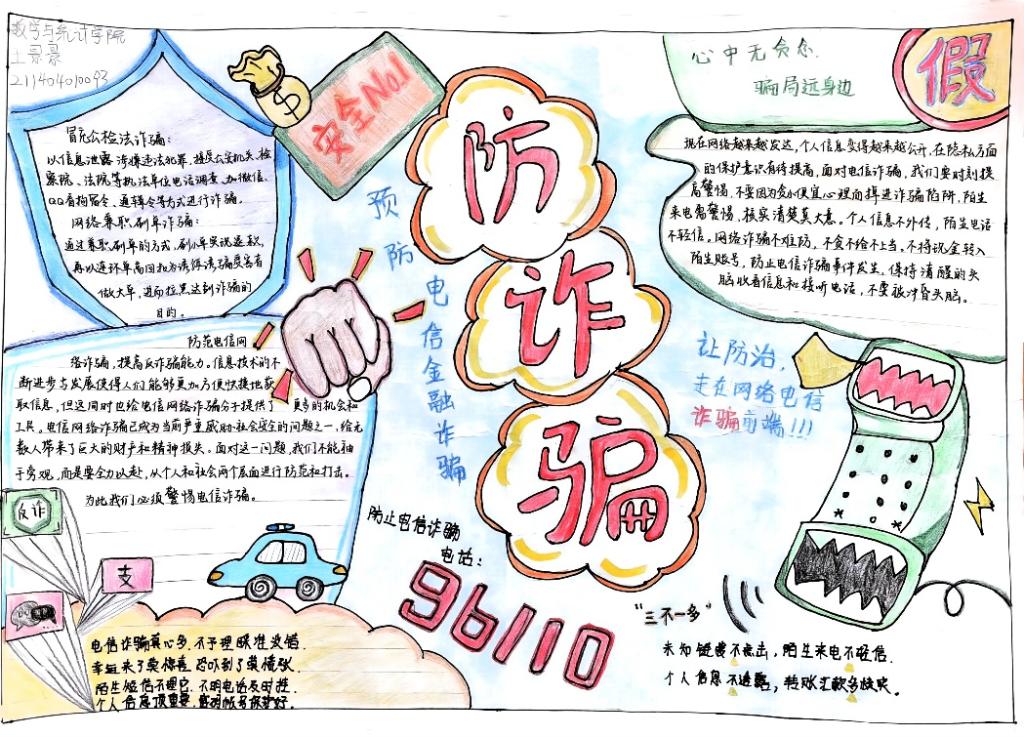 数学与统计学院
211404010093
安全No.1
冒充公检法诈骗:
以信息泄露、涉嫌违法犯罪,接受公安机关、检
察院、法院等执法单位电话调查,加微信、
QQ看拘留令、通缉令等方式进行诈骗。
网络兼职刷单诈骗:
通过兼职刷单的方式,刷小单实现返款,
再以连环单高回扣为诱饵诱骗受害者
做大单,进而拉黑达到诈骗的
目的。
防范电信网
络诈骗,提高反诈骗能力。信息技术的不
断进步与发展使得人们能够更加方便快捷地获
取信息,但这同时也给电信网络诈骗分子提供了更多的机会和
工具。电信网络诈骗已成为当前严重威胁社会安全的问题之一,给无
数人带来了巨大的财产和精神损失。面对这一问题,我们不能袖
手旁观,而是要全力以赴,从个人和社会两个层面进行防范和打击。
为此我们必须警惕电信诈骗。
反诈
支
电信诈骗莫心多,不予理睬准没错.
幸运来了莫惊喜,恐吓到了莫慌张.
陌生短信不理它,不明电话及时挂.
个人信息顶重要,
防诈骗
预防电信金融诈骗
防止电信诈骗
电话:
96110
心中无贪念,
骗局远身边
假
现在网络越来越发达,个人信息变得越来越公开,在隐私方面
的保护意识有待提高,面对电信诈骗,我们要时刻提
高警惕,不要因贪小便宜心理而掉进诈骗陷阱,陌生
来电需警惕,核实清楚莫大意。个人信息不外传,陌生电话
不轻信。网络诈骗不难防,不贪不给不上当。不将现金转入
陌生账号,防止电信诈骗事件发生,保持清醒的头
脑收看信息和接听电话,不要被冲昏头脑。
让防治,
走在网络电信
诈骗前端!!!
"三不一多"
未知链接不点击,陌生来电不轻信.
个人信息不透露,转账汇款多核实。